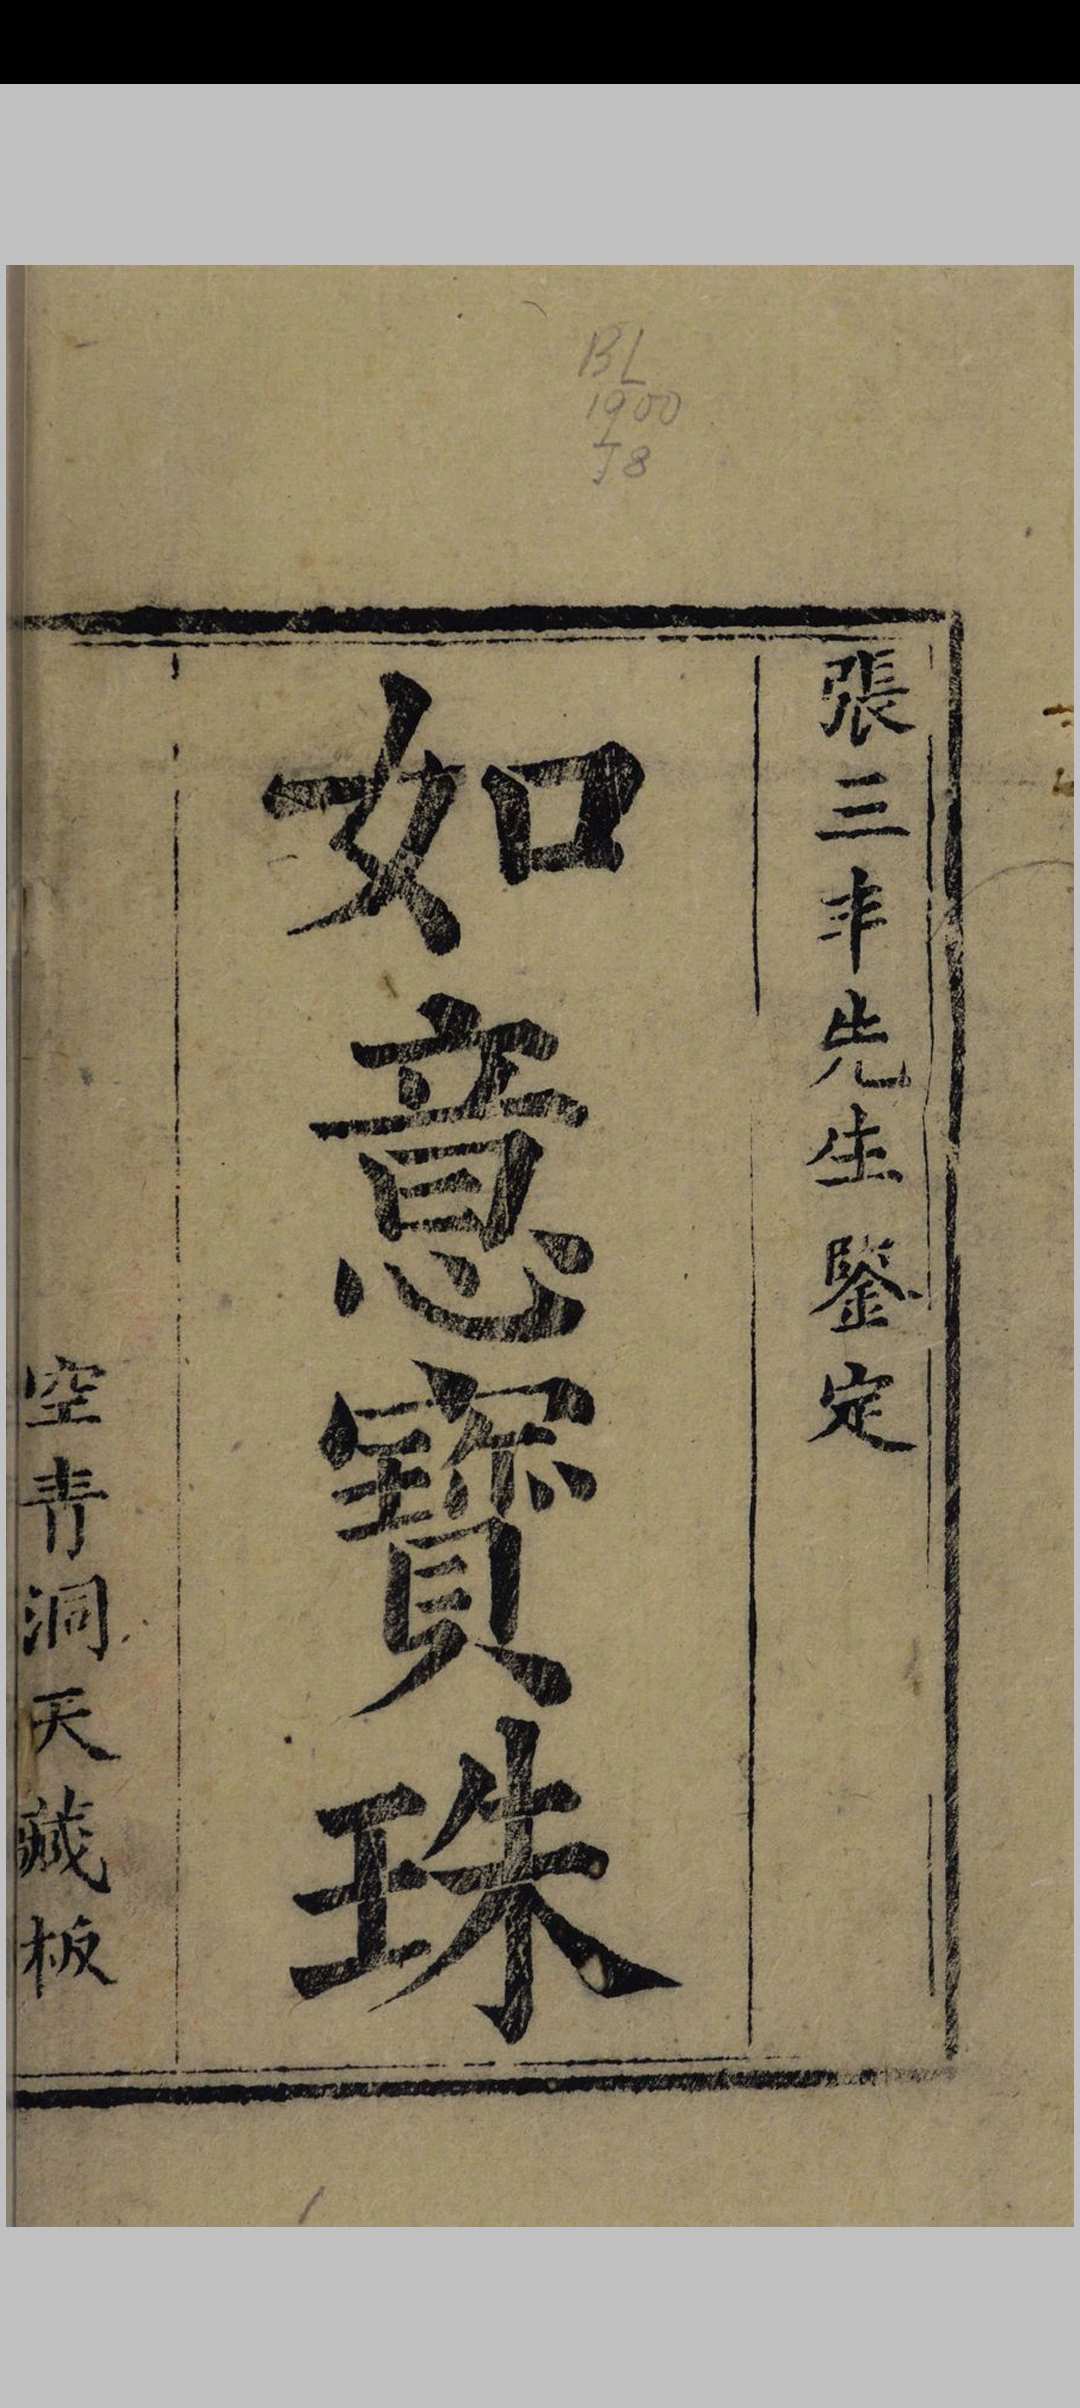 BL
1900
J8
張三丰先生鑒定
如意寶珠
空青洞天藏板